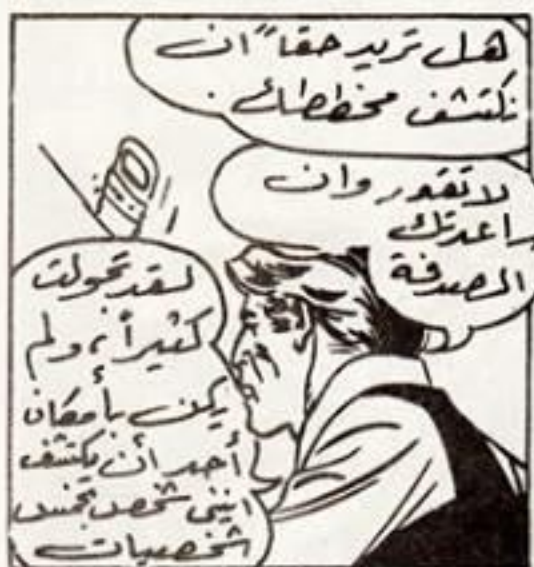 هل تريد حقاً ان
نكتشف مخططك.
لا تقدر وان
ساعدتك
الصدفة
لقد تجولت
كثيراً، ولم
يكن بأمكان
أحد أن يكتشف
انني شخص بخمس
شخصيات